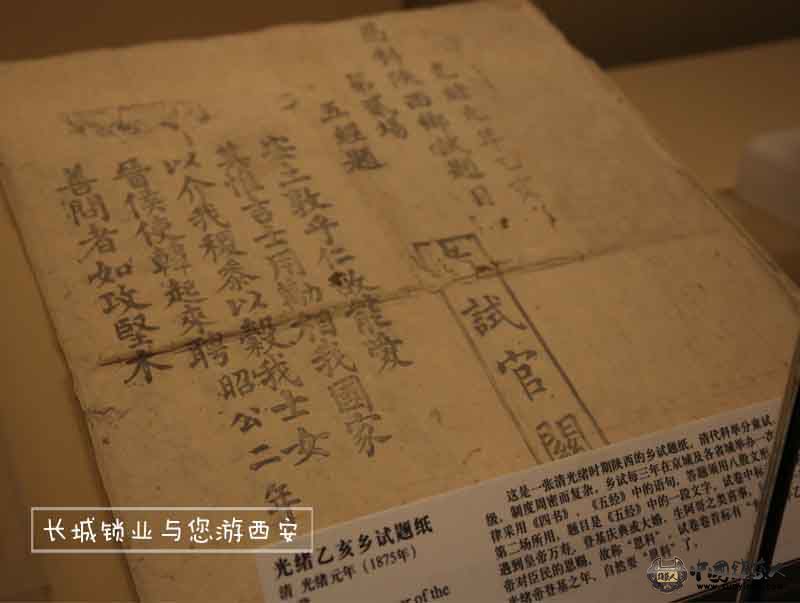 光緒元年乙亥
恩科陝西鄉試題目
第貳場
五經題
安土敦乎仁故能愛
其惟吉士用勱相我國家
以介我稷黍以穀我士女
晉侯使韓起來聘昭公二年
善問者如攻堅木
試官關
长城锁业与您游西安
光绪乙亥乡试题纸
清 光绪元年（1875年）
of the
这是一张清光绪时期陕西的乡试题纸。清代科举分童试
级，制度周密而复杂，乡试每三年在京城及各省城举办一次
律采用《四书》、《五经》中的语句，答题须用八股文形
第二场所用，题目是《五经》中的一段文字，试卷中标
遇到皇帝万寿、登基庆典或大婚、生阿哥之类喜事，
帝对臣民的恩赐，故称“恩科”，试卷卷首标有“
光绪帝登基之年，自然要“恩科”了。
中国锁匠人